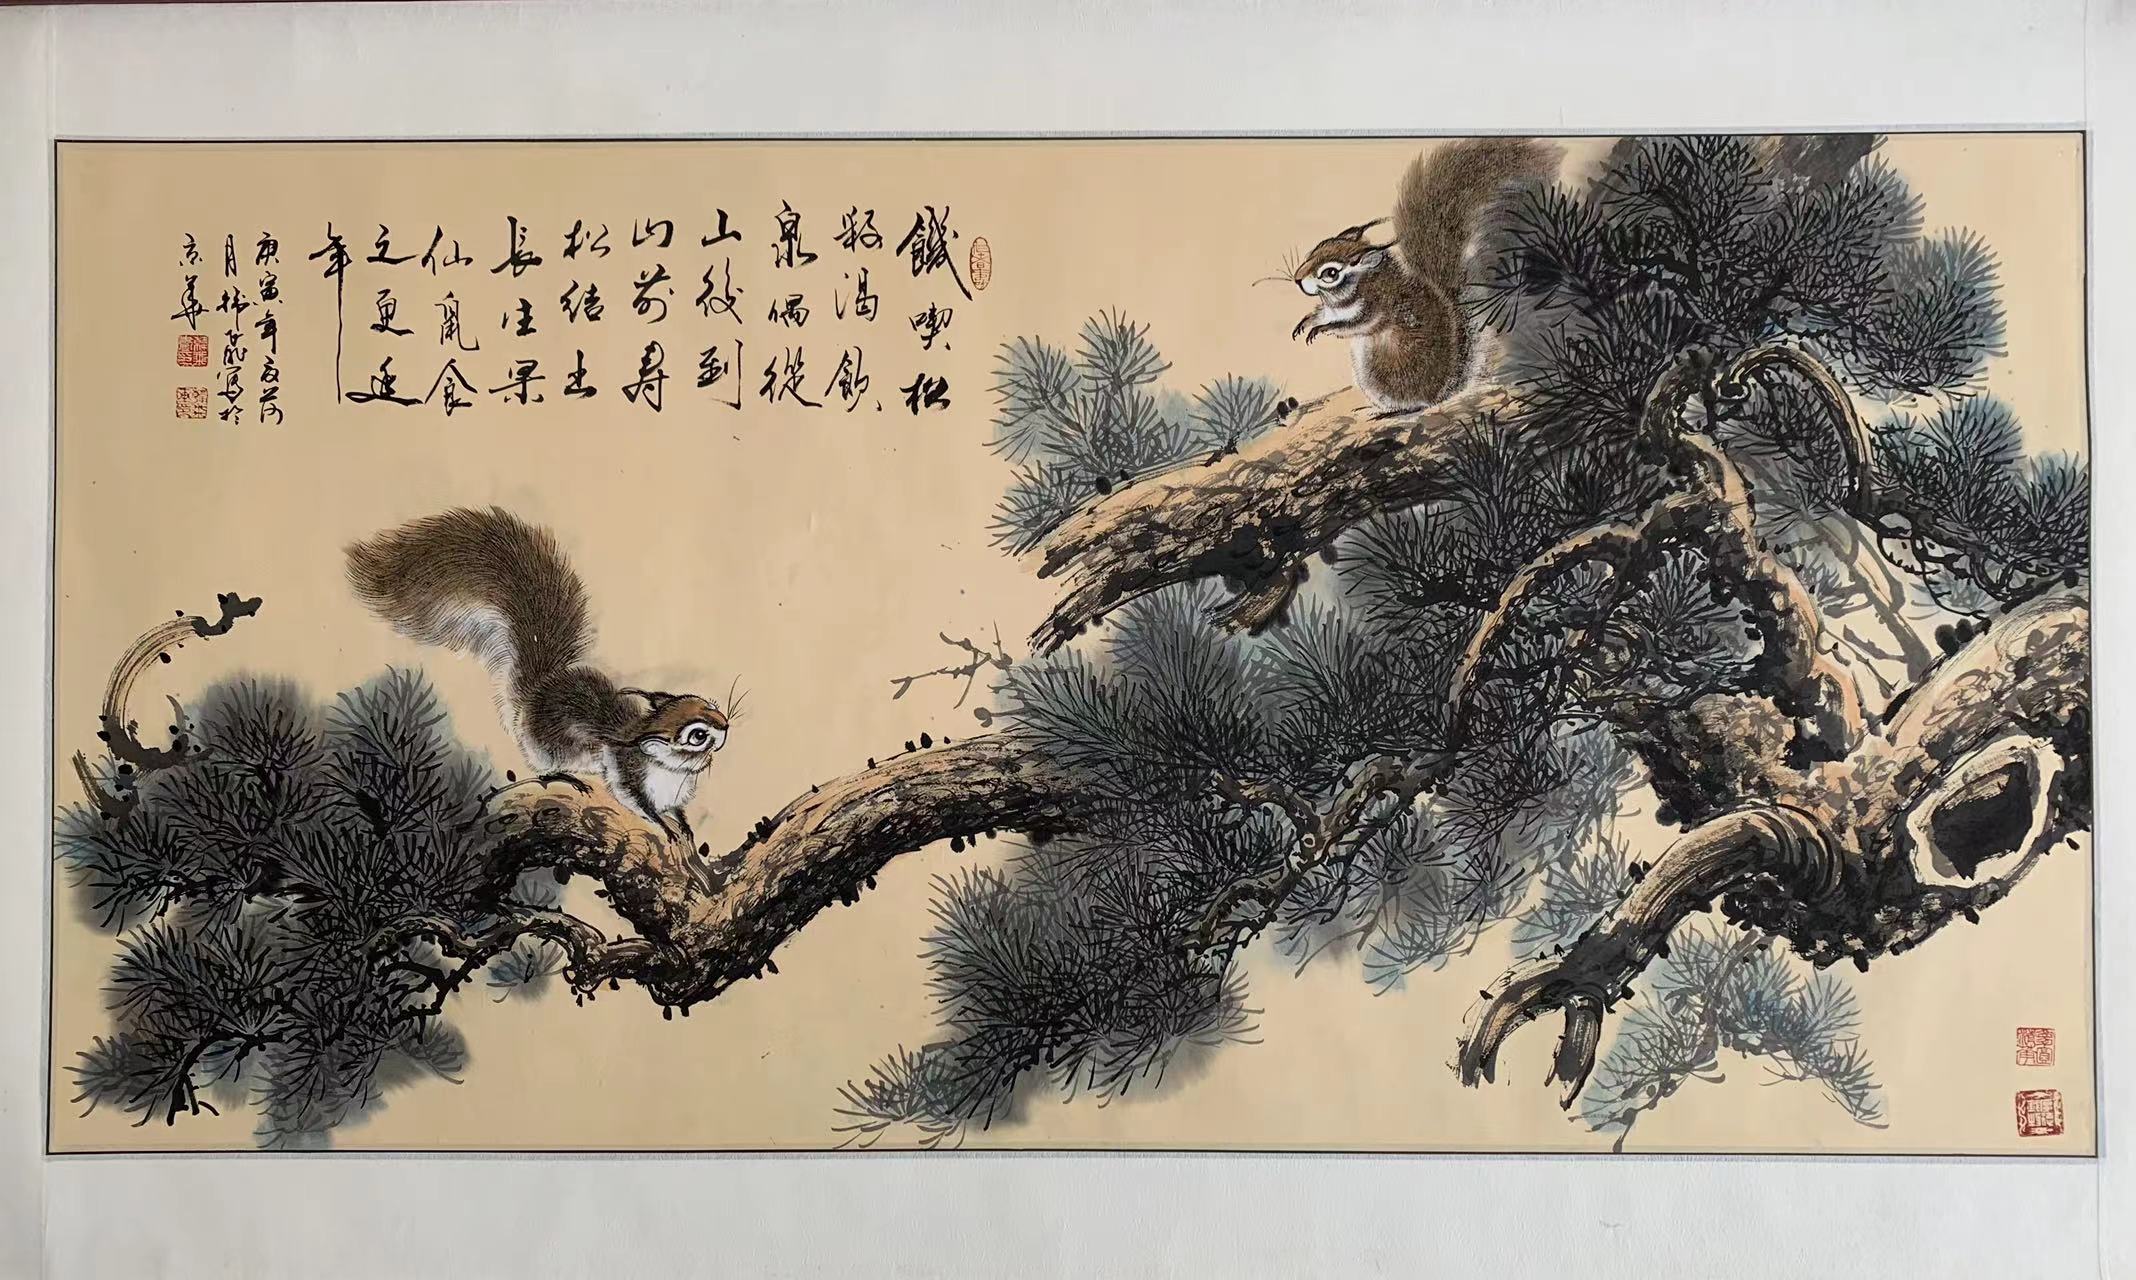 饑喫松
渴飲
泉偶從
山後到
山前壽
松結出
長生果
仙鼠食
之更延
年
庚寅年夏荷
月寫於
京華